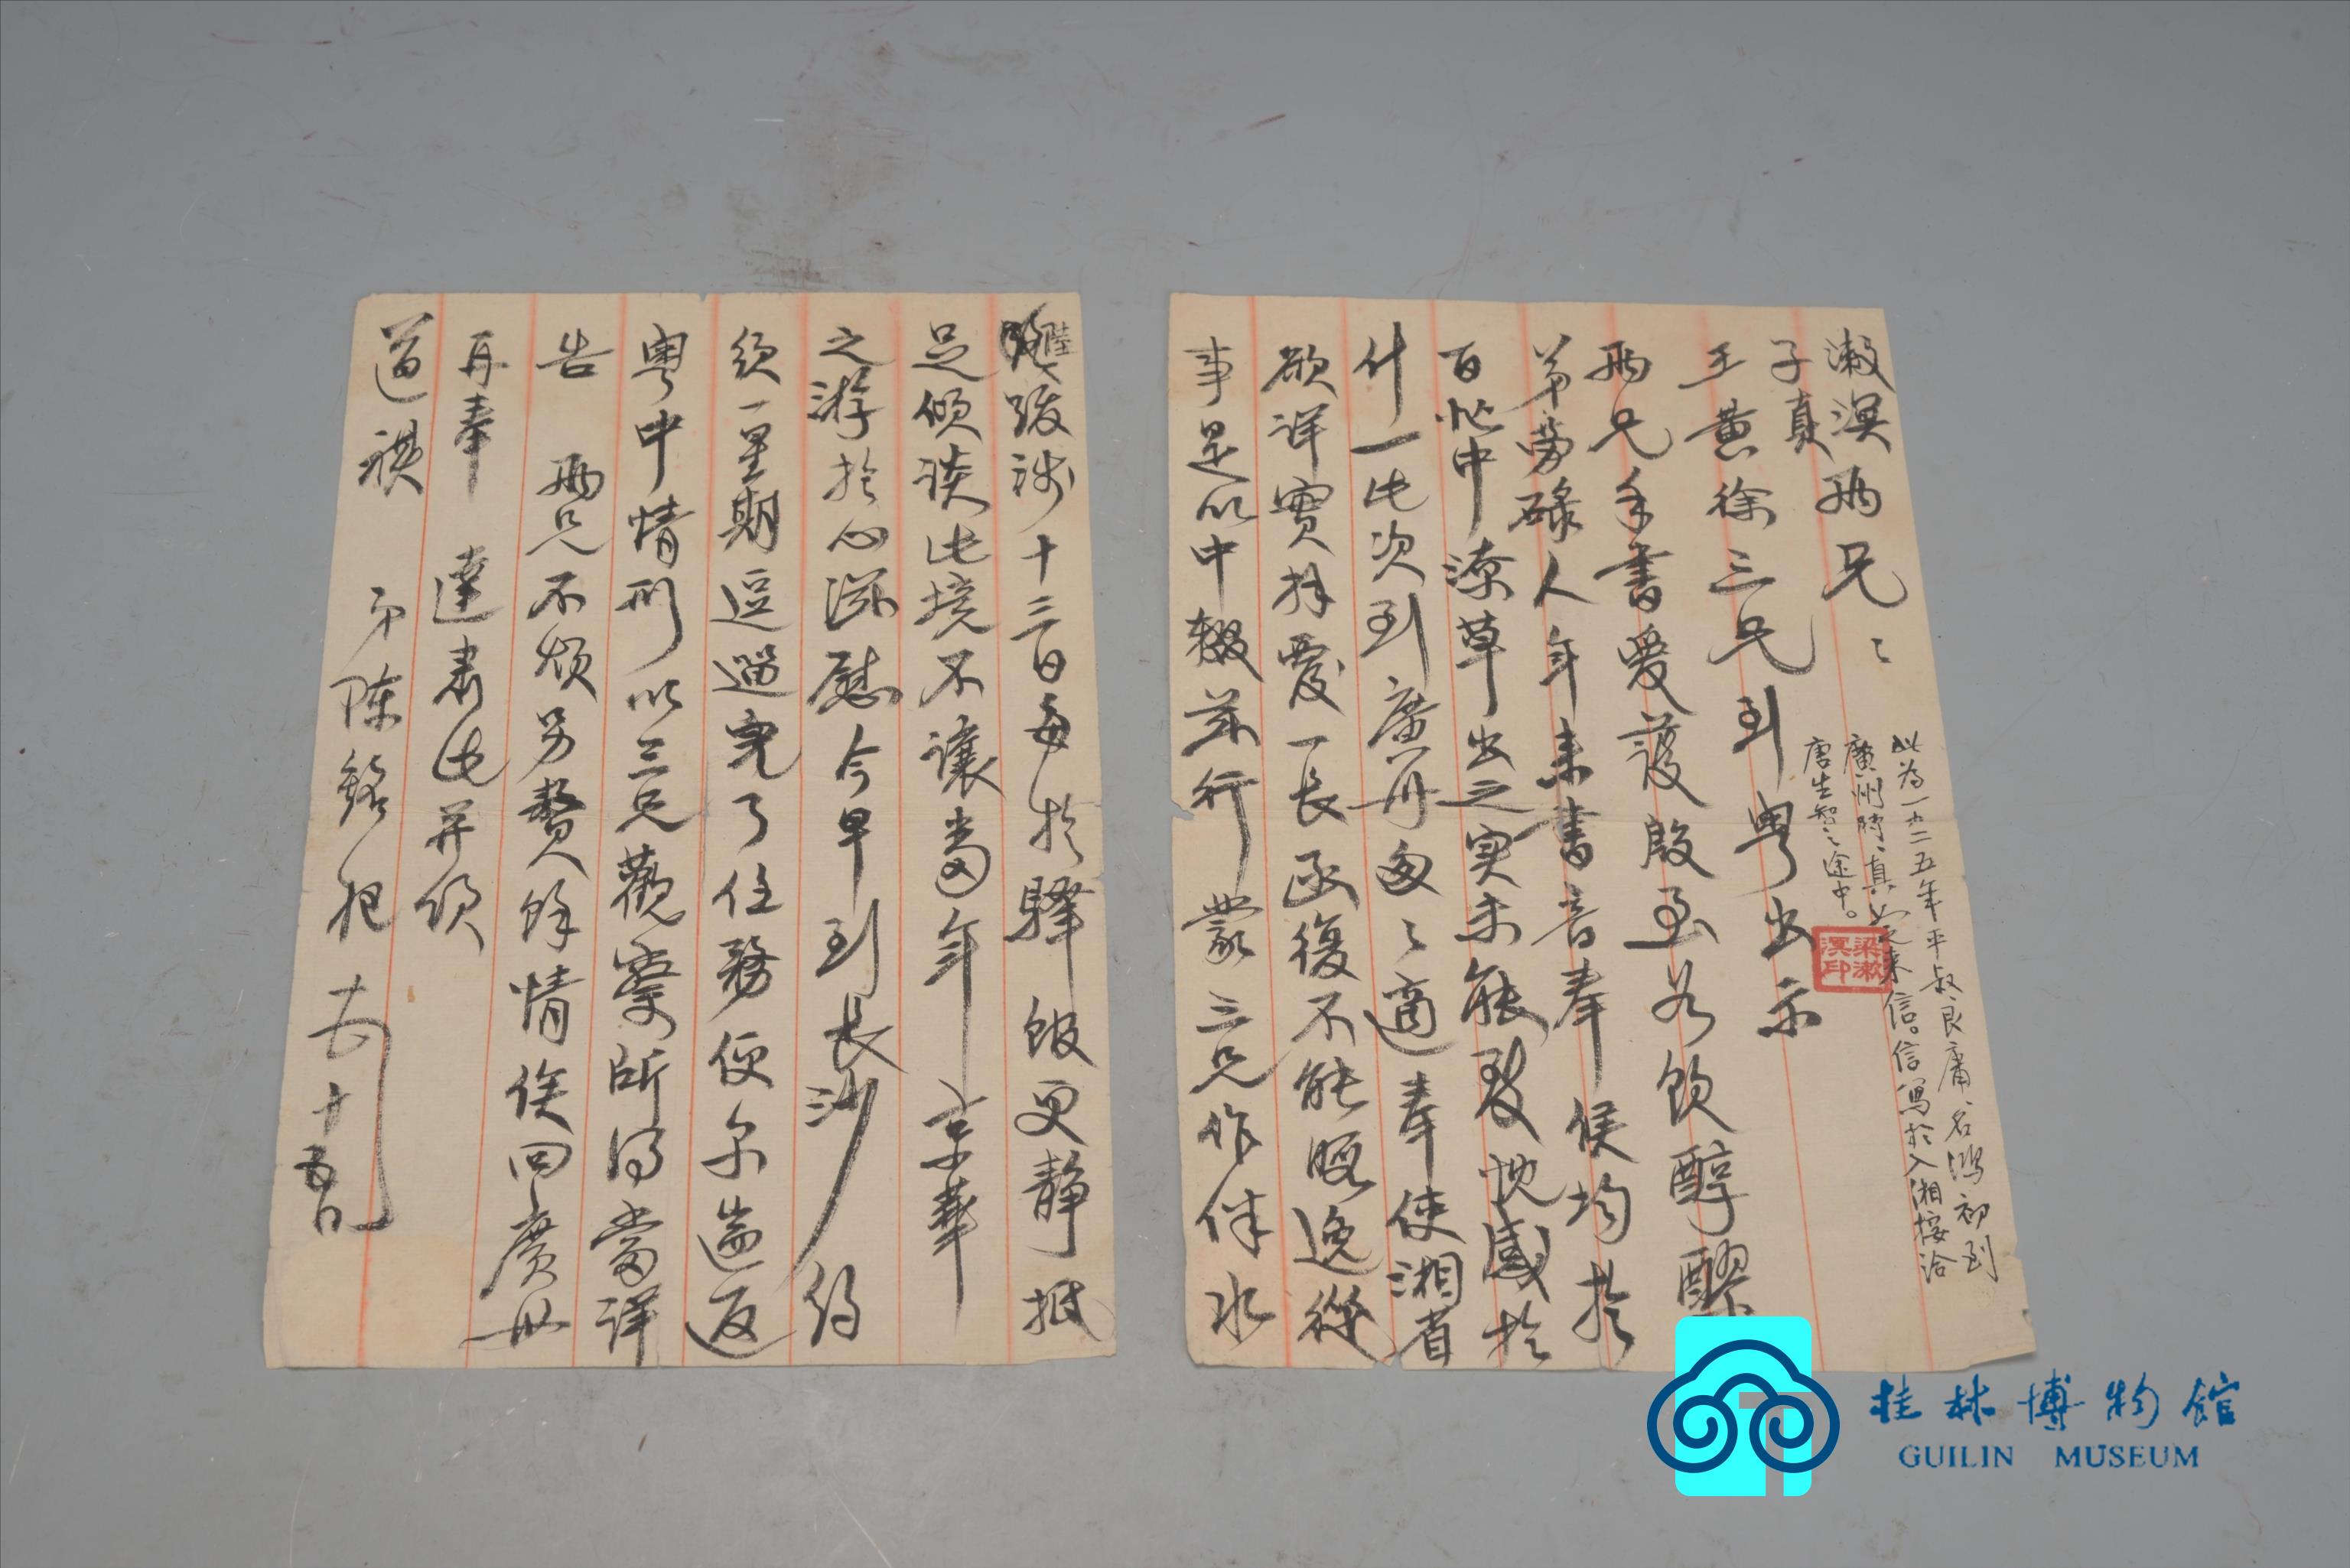 漱溟兩兄：
子真
王黄徐三兄到粤出示
兩兄手書愛護殷至若飲醇醪
弟勞碌人年来書音奉候均於
百忙中潦草出之实未能致忱感於
什一此次到廣州匆匆適奉使湘省
欲詳實择要一長函復不能暇逸從
事是以中輟兹行蒙三兄作伴水
陸跋涉十三日每於驛館更静抵
足傾談此境不讓當年京華
之游於心滋慰今早到長沙約
须一星期逗遛完了任務便尔遄返
粤中情形以三兄觀察所得當詳
告 兩兄不煩另贅餘情俟回廣州
再奉 達肃此并頌
道祺
弟陳銘枢 十五日
此為一九二五年平叔、良庸、名鴻初到
廣州時、真如之来信。信寫於入湘接洽
唐生智之途中。
梁漱溟印
桂林博物館
GUILIN MUSEUM